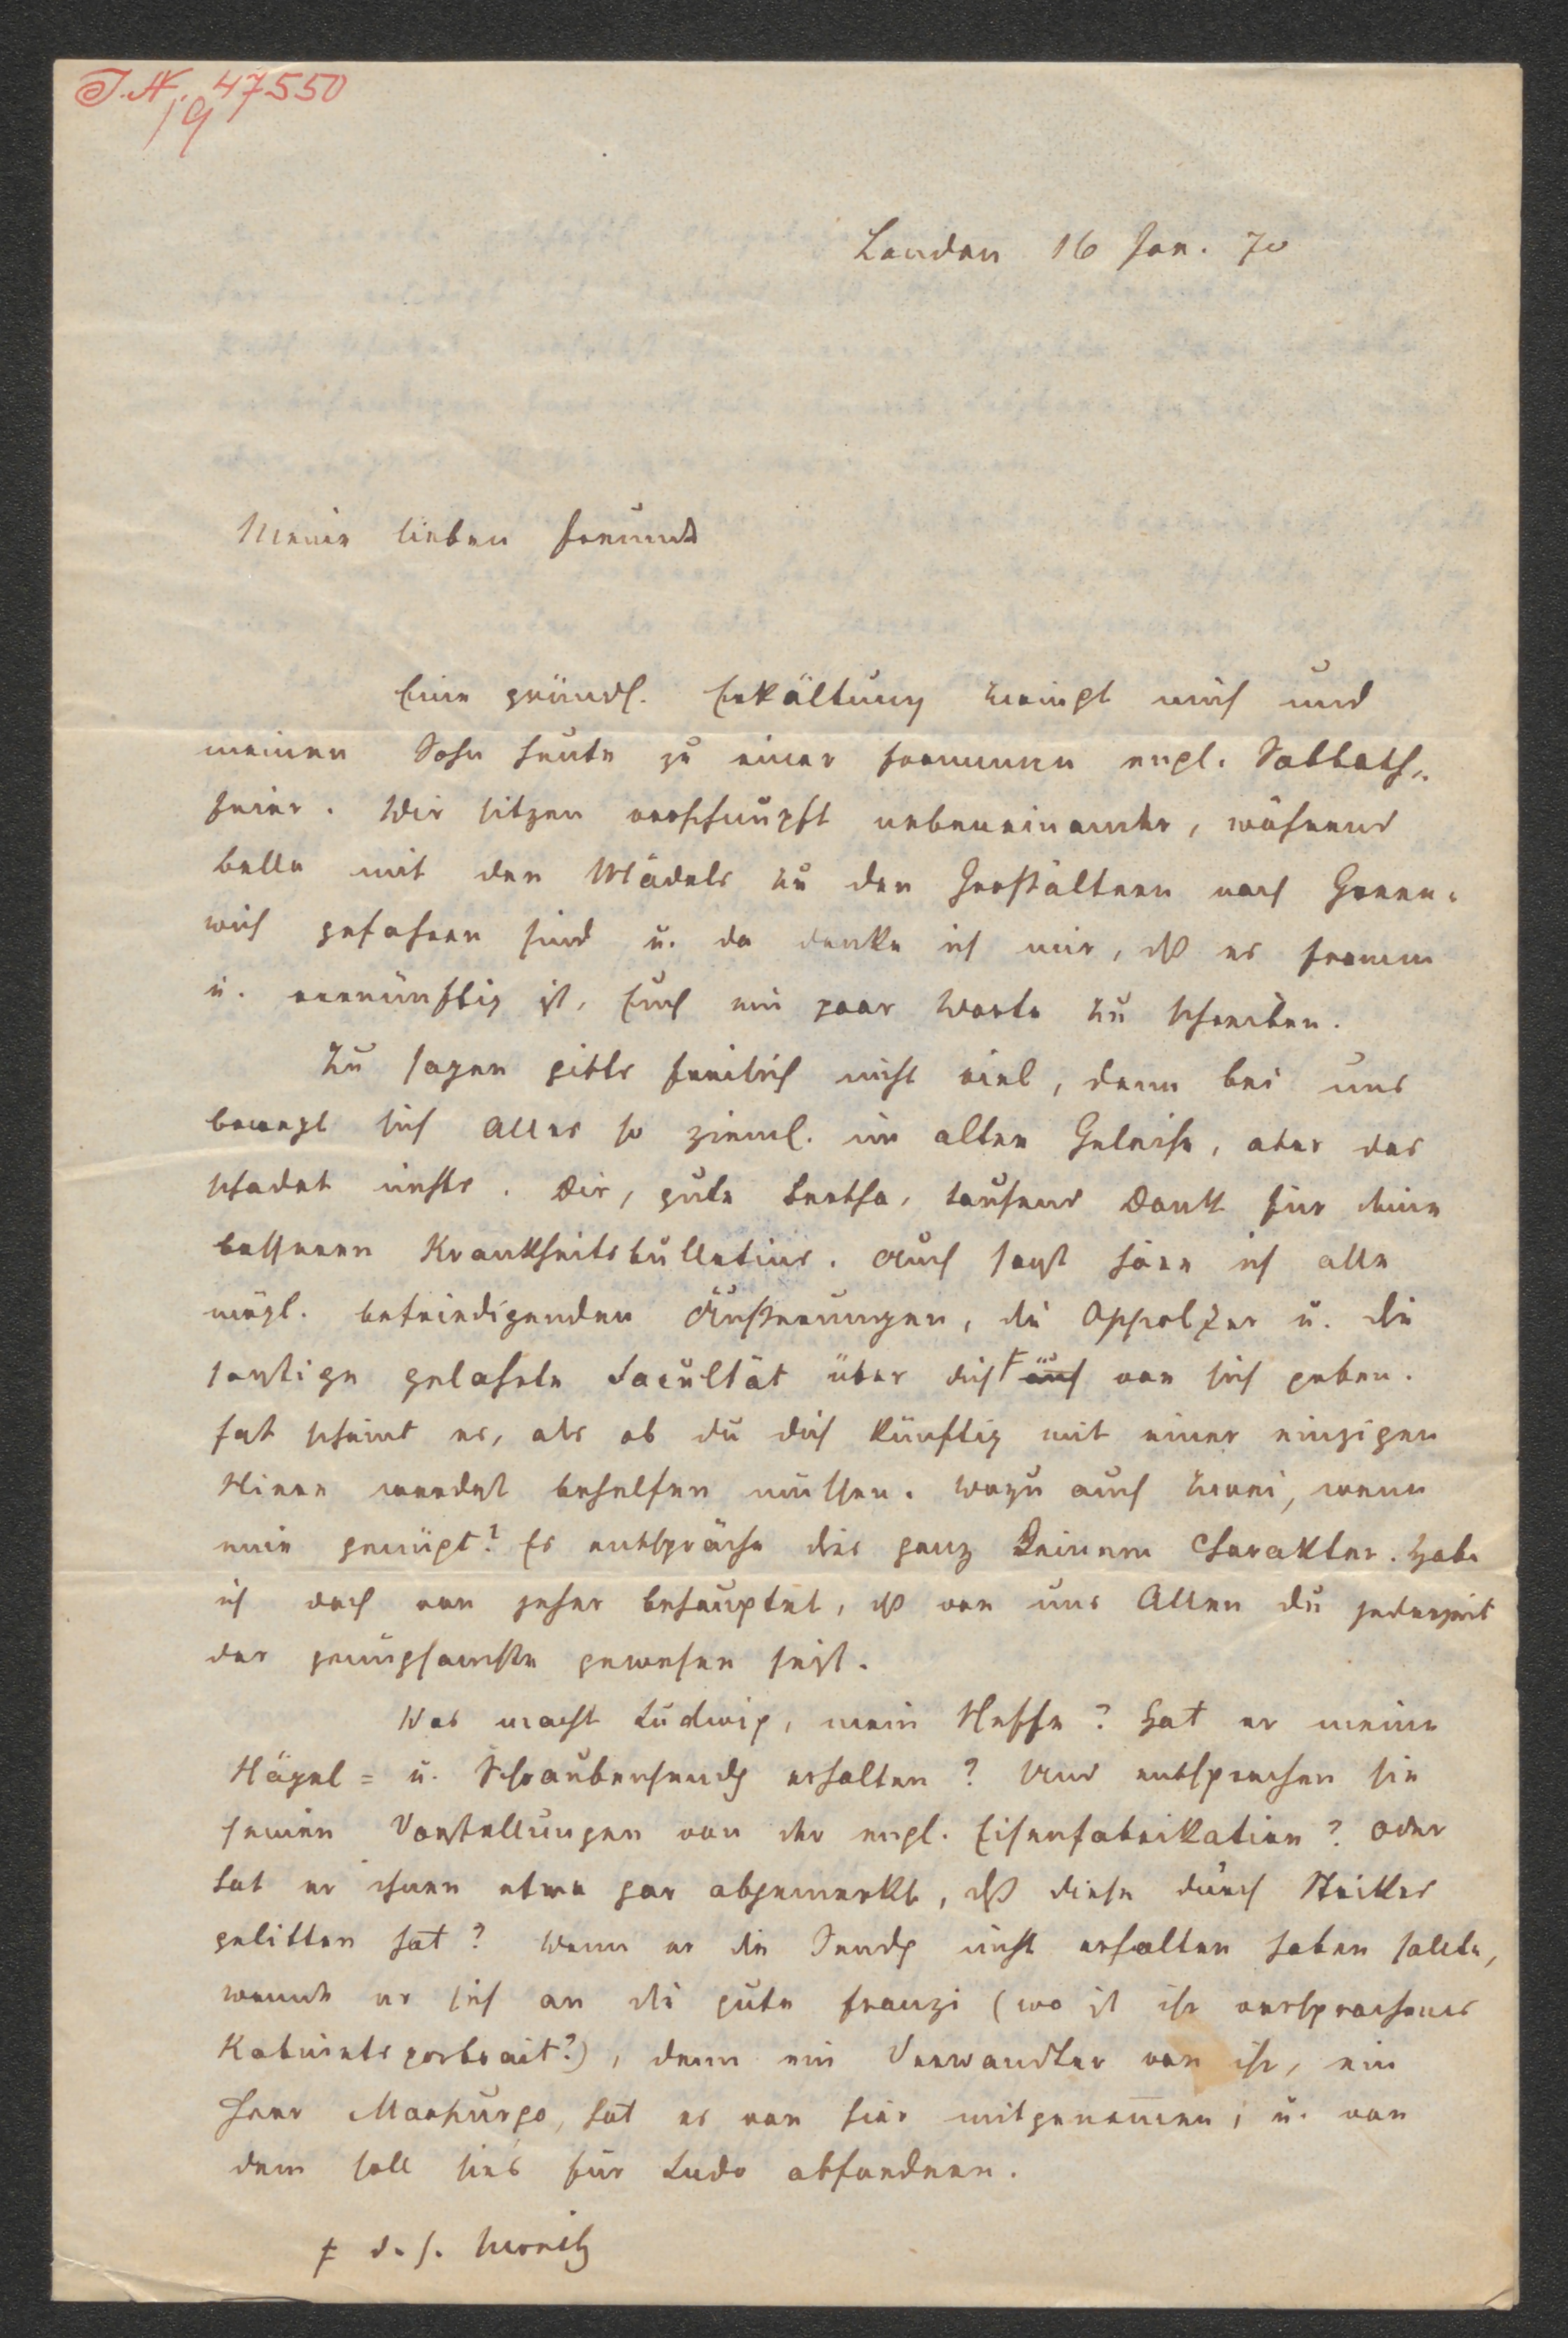 I.N. 47550
19
London 16 Jan. 70
Meine lieben Freunde
Eine gründl. Erkältung zwingt mich und
meinen Sohn heute zu einer frommen engl. Sabbath-
feier. Wir sitzen verschnupft nebeneinander, während
Bella mit den Mädels zu den Großältern nach Green-
wich gefahren sind u. da denke ich mir, dß es fromm
u. vernünftig ist, Euch ein paar Worte zu schreiben.
Zu sagen gibts freilich nicht viel, denn bei uns
bewegt sich Alles so zieml. im alten Geleise, aber das
schadet nichts. Dir, gute Bertha, tausend Dank für deine
besseren Krankheitsbulletins. Auch sonst höre ich alle
mögl. befriedigenden Äußerungen, die Oppolzer u. die
sonstige gelahrte Facultät über dich ŧ auch von sich geben.
Fast scheint es, als ob du dich künftig mit einer einzigen
Niere werdest behelfen müssen. Wozu auch zwei, wenn
eine genügt? Es entspräche dies ganz Deinem Charakter. Habe
ich doch von jeher behauptet, dß von uns Allen du jederzeit
der genügsamste gewesen seist.
Was macht Ludwig, mein Neffe? Hat er meine
Nägel= u. Schraubensendg erhalten? Und entsprechen sie
seinen Vorstellungen von der engl. Eisenfabrikation? Oder
hat er ihnen etwa gar abgemerkt, dß diese durch Strikes
gelitten hat? Wenn er die Sendg nicht erhalten haben sollte,
wende er sich an die gute Franzi (wo ist ihr versprochenes
Kabinetsportrait?), denn ein Verwandter von ihr, ein
Herr Morpurgo, hat es von hier mitgenom̄en; u. von
dem soll sie's für Ludo abfordern.
ŧ d. h. Moritz